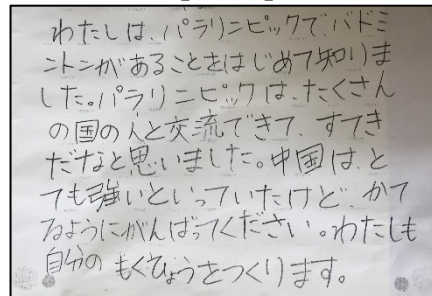 わたしは、パラリンピックで、バドミ
ントンがあることをはじめて知りま
した。パラリンピックは、たくさん
の国の人と交流できて、すてき
だなと思いました。中国は、と
ても強いといっていたけど、かて
るようにがんばってください。わたしも
自分の もくひょうをつくります。